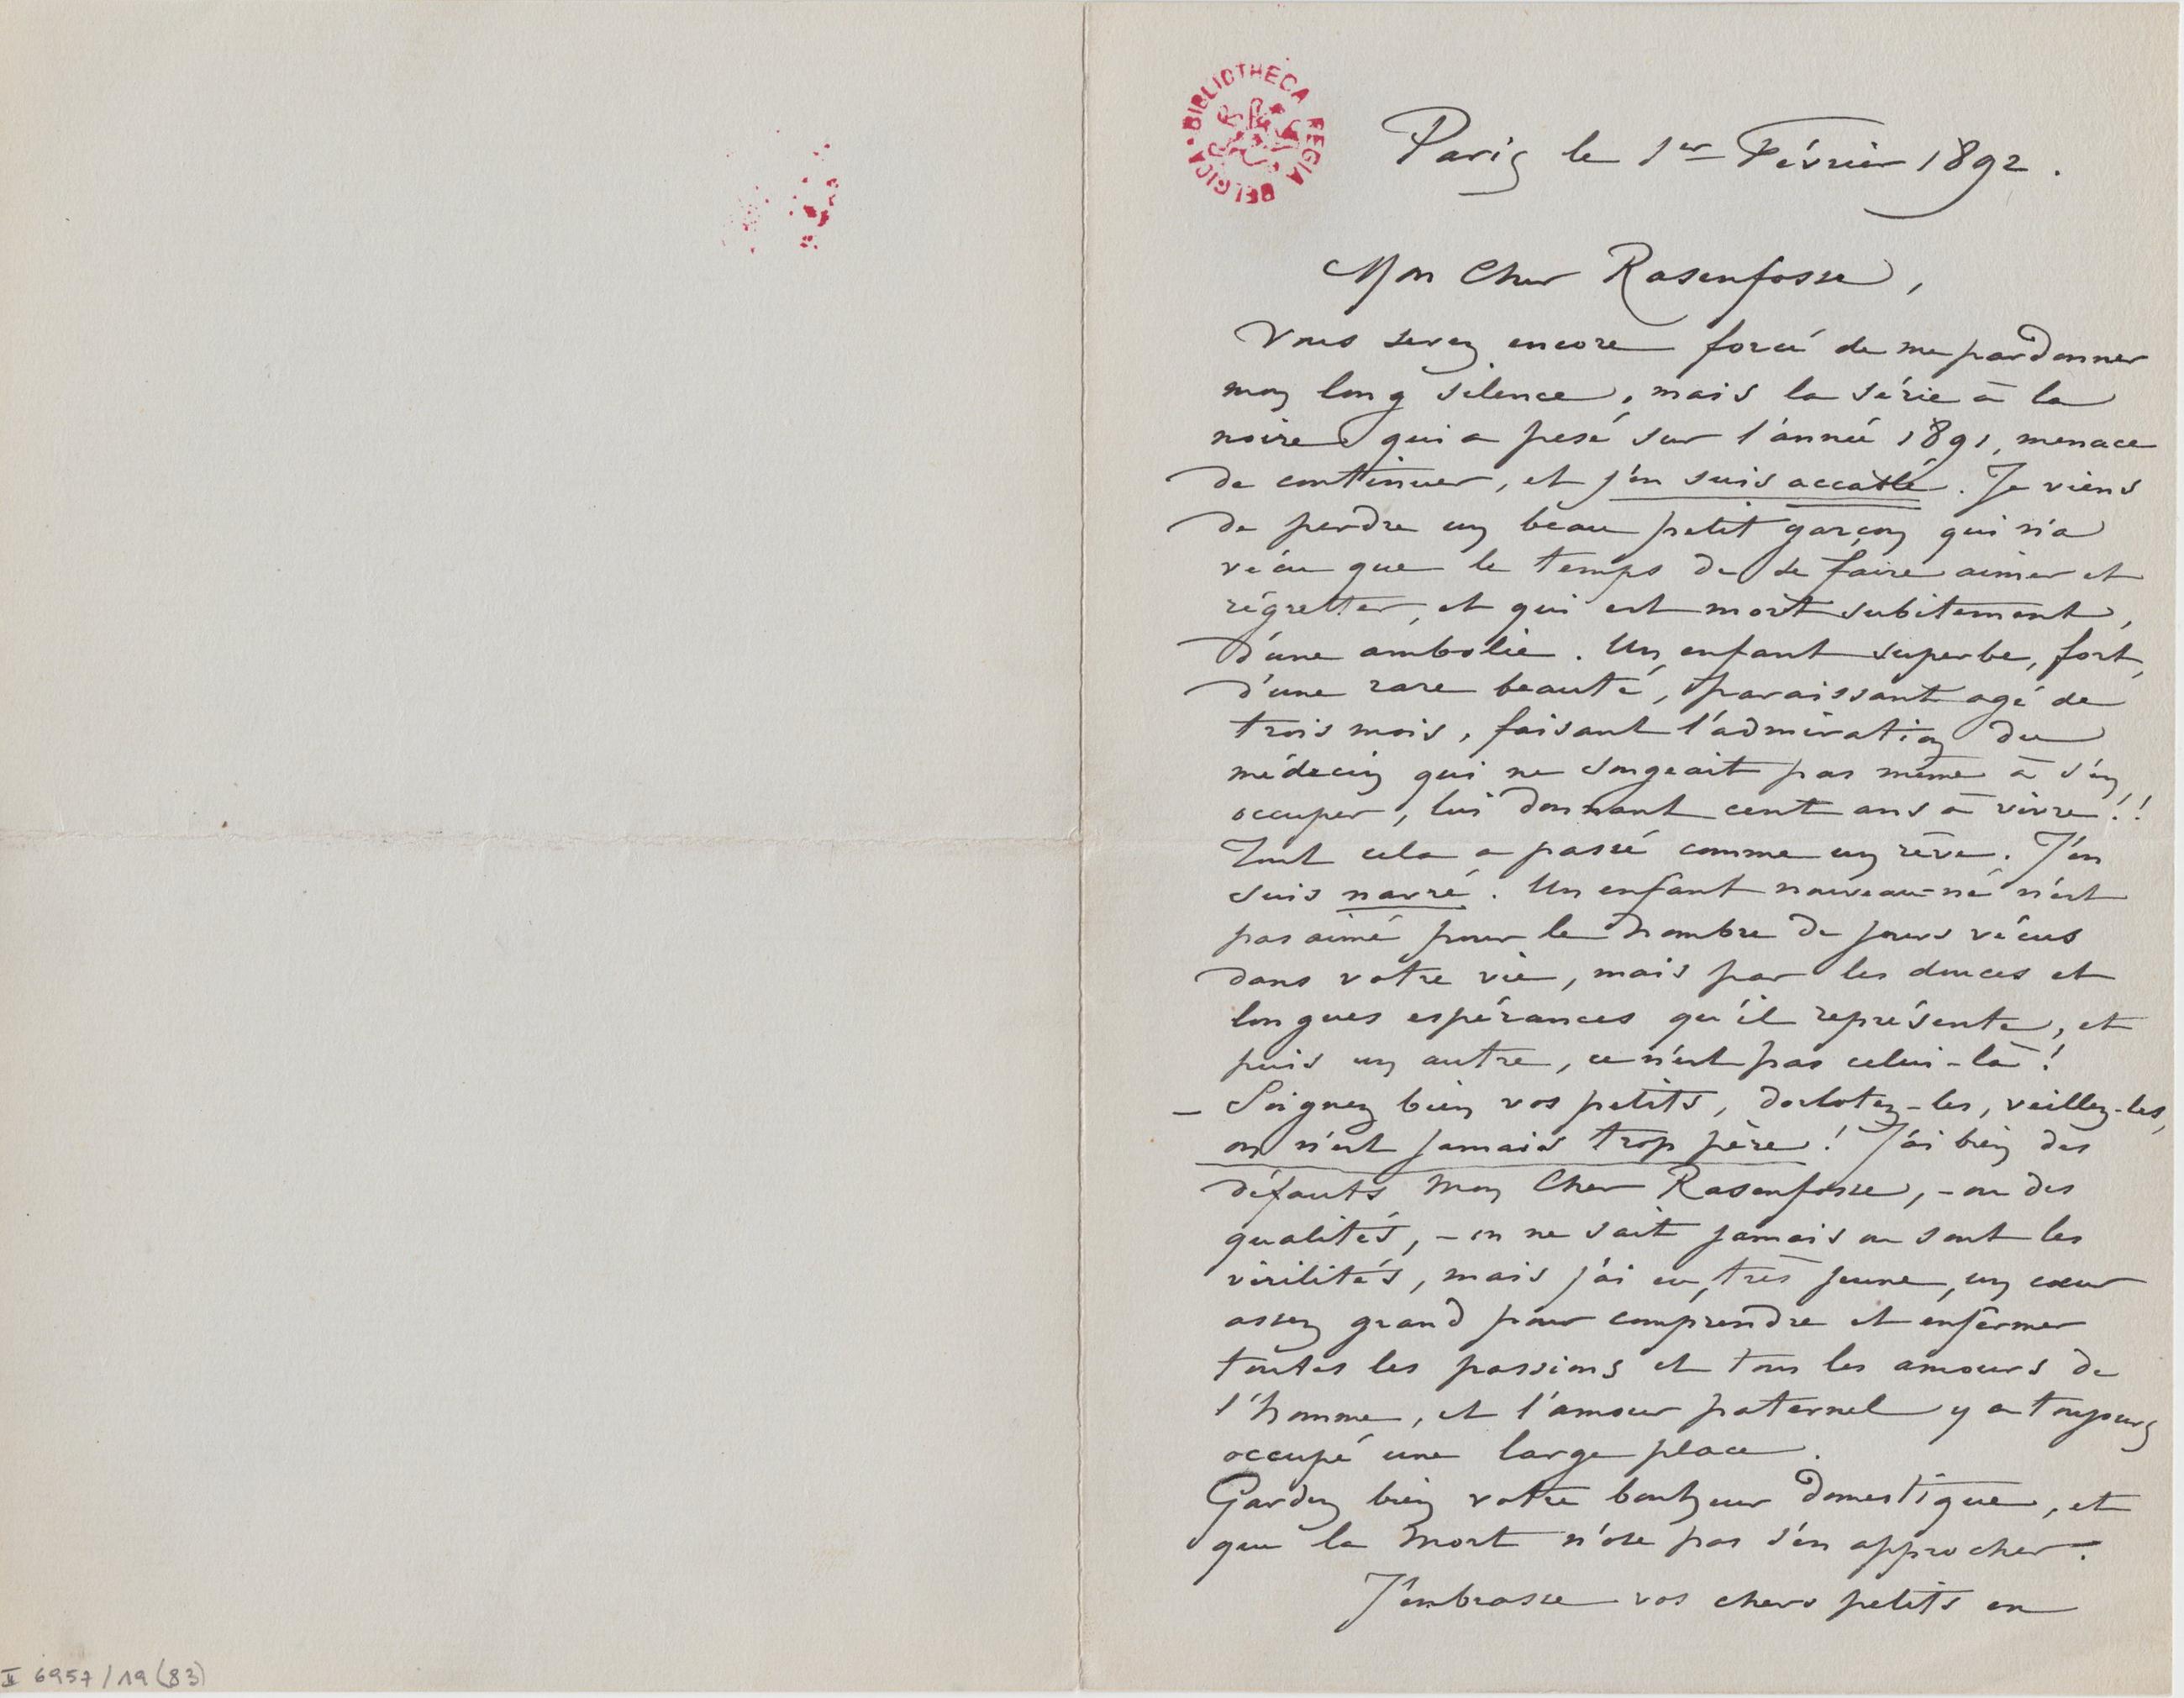 BIBLIOTHECA REGIA BELGICA
Paris le 1er Février 1892.
Mon Cher Rasenfosse,
Vous serez encore forcé de me pardonner
mon long silence, mais la série à la
noire qui a pesé sur l'année 1891, menace
de continuer, et j'en suis accablé. Je viens
de perdre un beau petit garçon qui n'a
vécu que le temps de se faire aimer et
régretter, et qui est mort subitement,
d'une ambolie. Un enfant superbe, fort,
d'une rare beauté, paraissant agé de
trois mois, faisant l'admiration du
médecin qui ne songeait pas même à s'en
occuper, lui donnant cent ans à vivre!!
Tout cela a passé comme un rêve. J'en
suis navré. Un enfant nouveau-né n'est
pas aimé pour le nombre de jours vécus
dans votre vie, mais par les douces et
longues espérances qu'il représente, et
puis un autre, ce n'est pas celui-là!
– Soignez bien vos petits, dorlotez-les, veillez-les,
on n'est jamais trop père! J'ai bien des
défauts mon Cher Rasenfosse, – ou des
qualités, – on ne sait jamais ou sont les
virilités, mais j'ai eu, très jeune, un cœur
assez grand pour comprendre et enfermer
toutes les passions et tous les amours de
l'homme, et l'amour paternel y a toujours
occupé une large place.
Gardez bien votre bonheur domestique, et
que la mort n'ose pas s'en approcher.
J'embrasse vos chers petits en
II 6957/19(83)